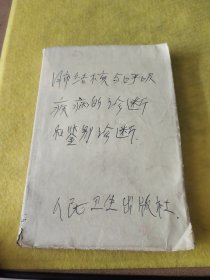 肺结核与呼吸
疾病的诊断
和鉴别诊断.
人民卫生出版社.